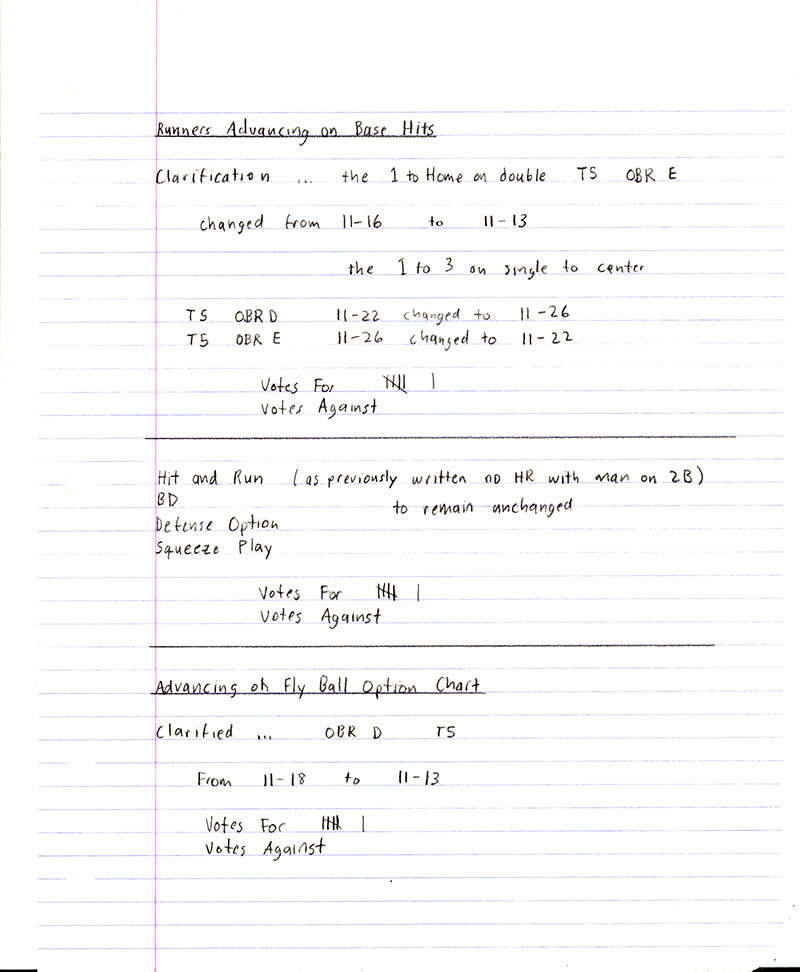 Runners Advancing on Base Hits
Clarification ... the 1 to Home on double TS OBR E
changed from 11-16 to 11-13
the 1 to 3 on single to center
TS OBR D 11-22 changed to 11-26
TS OBR E 11-26 changed to 11-22
Votes For 𝍸 |
Votes Against
Hit and Run (as previously written no HR with man on 2B)
BD to remain unchanged
Defense Option
Squeeze Play
Votes For 𝍸 |
Votes Against
Advancing on Fly Ball Option Chart
Clarified ... OBR D TS
From 11-18 to 11-13
Votes For 𝍸 |
Votes Against